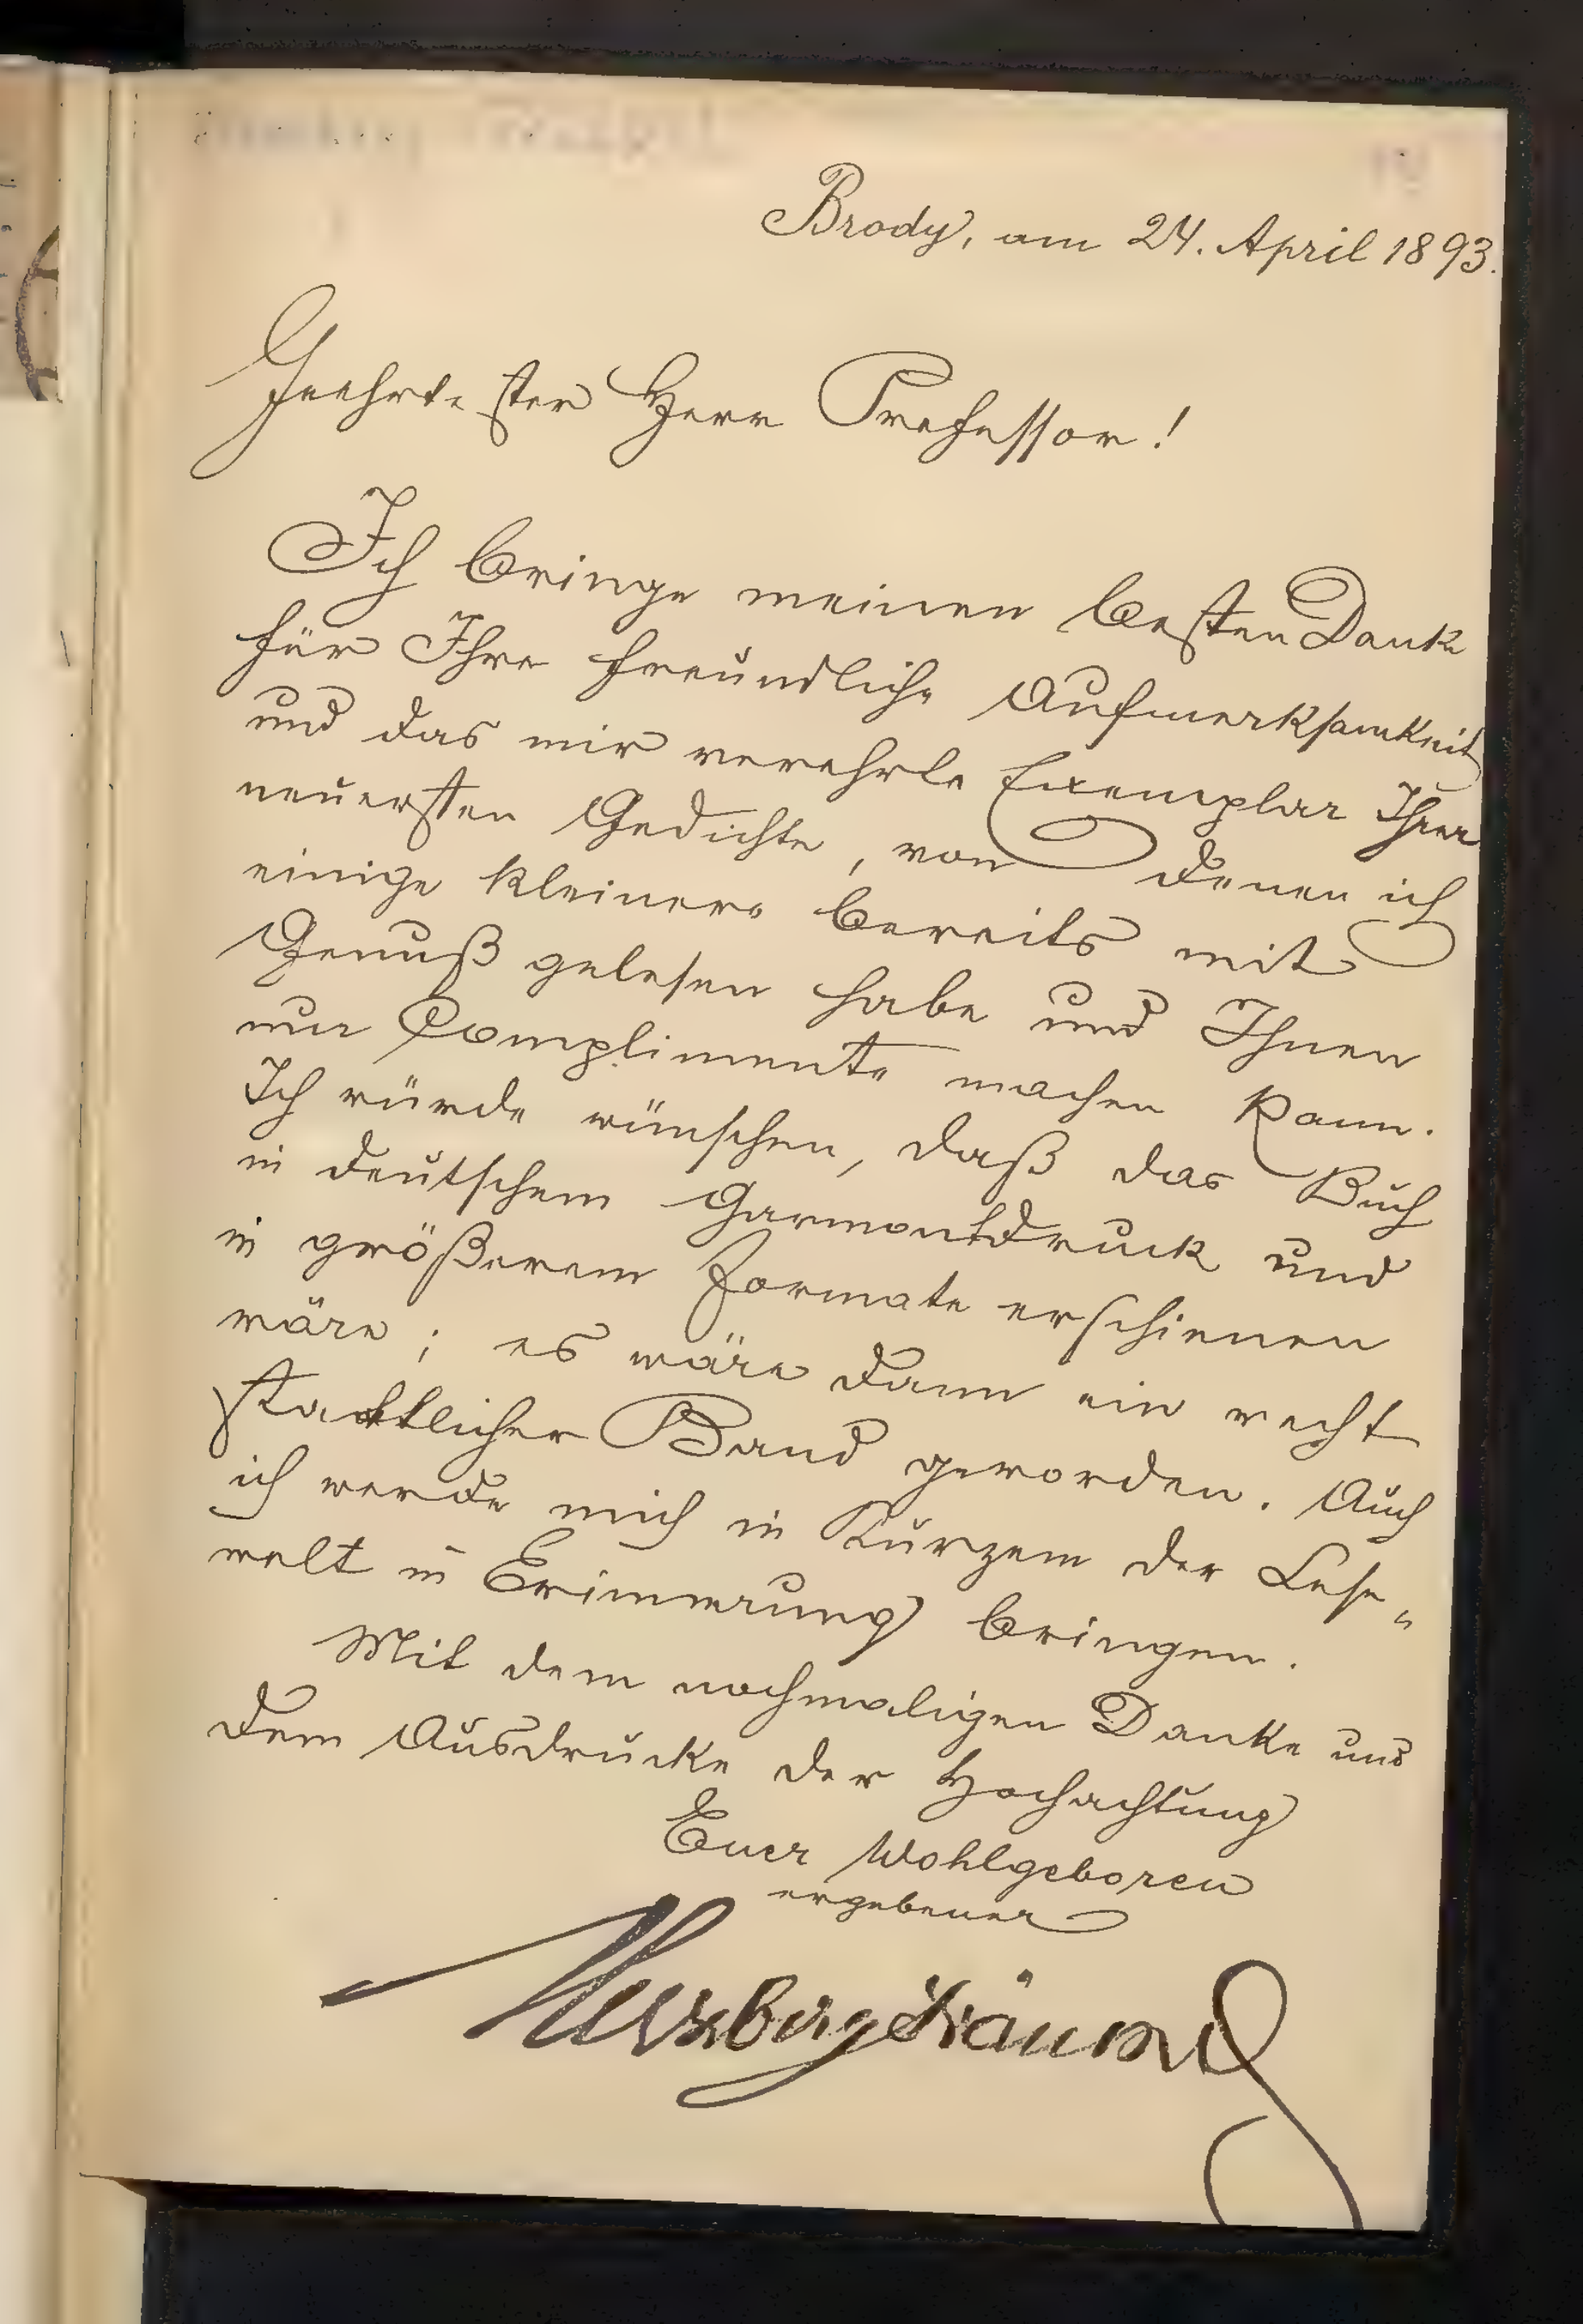 Brody, am 24. April 1893.
Geehrtester Herr Professor!
Ich bringe meinen besten Dank
für Ihre freundliche Aufmerksamkeit
und das mir verehrte Exemplar Ihrer
neuersten Gedichte, von denen ich
einige kleinere bereits mit
Genuß gelesen habe und Ihnen
nur Complimente machen kann.
Ich würde wünschen, daß das Buch
in deutschem Garmontdruck und
in größerem Formate erschienen
wäre; es wäre dann ein recht
stattlicher Band geworden. Auch
ich werde mich in Kurzem der Lese„
welt in Erinnerung bringen.
Mit dem nochmaligen Danke und
dem Ausdrucke der Hochachtung
Euer Wohlgeboren
ergebener
Herzberg Fränkel